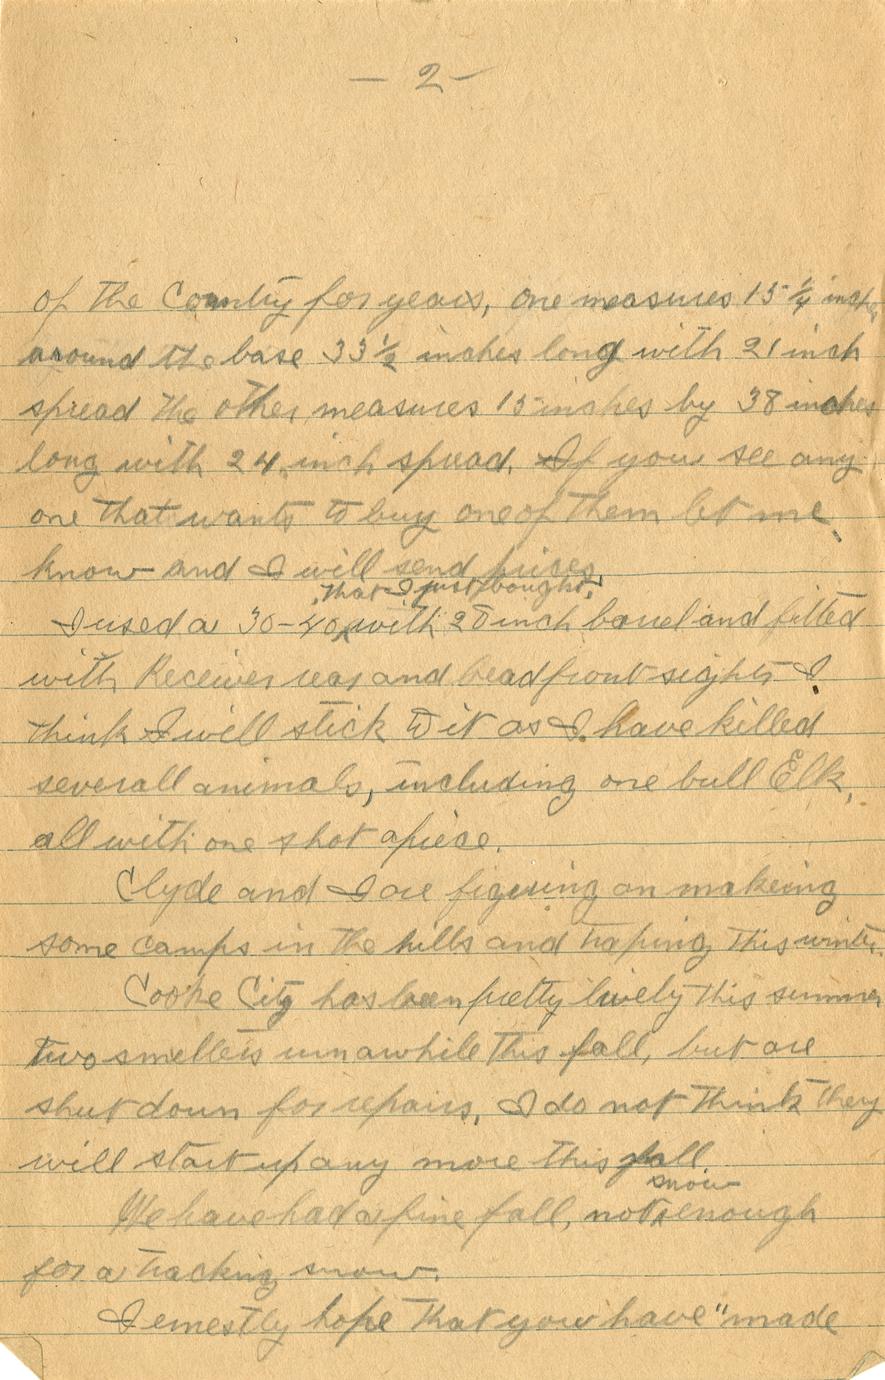 — 2 —
of the Country for years, one measures 15 1/4 inches
around the base 33 1/2 inches long with 21 inch
spread the other measures 15 inches by 38 inches
long with 24 inch spread. If you see any
one that wants to buy one of them let me
know and I will send prices
that I just bought
I used a 30-40 with 28 inch barrel and fitted
with Receiver rear and bead front sights I
think I will stick to it as I have killed
severall animals, including one bull Elk,
all with one shot apiece.
Clyde and I are figuring on makeing
some camps in the hills and traping this winter.
Cooke City has been pretty lively this summer
two smelters run awhile this fall, but are
shut down for repairs, I do not think they
will start up any more this fall
snow
We have had a fine fall, not enough
for a tracking snow.
I ernestly hope that you have "made